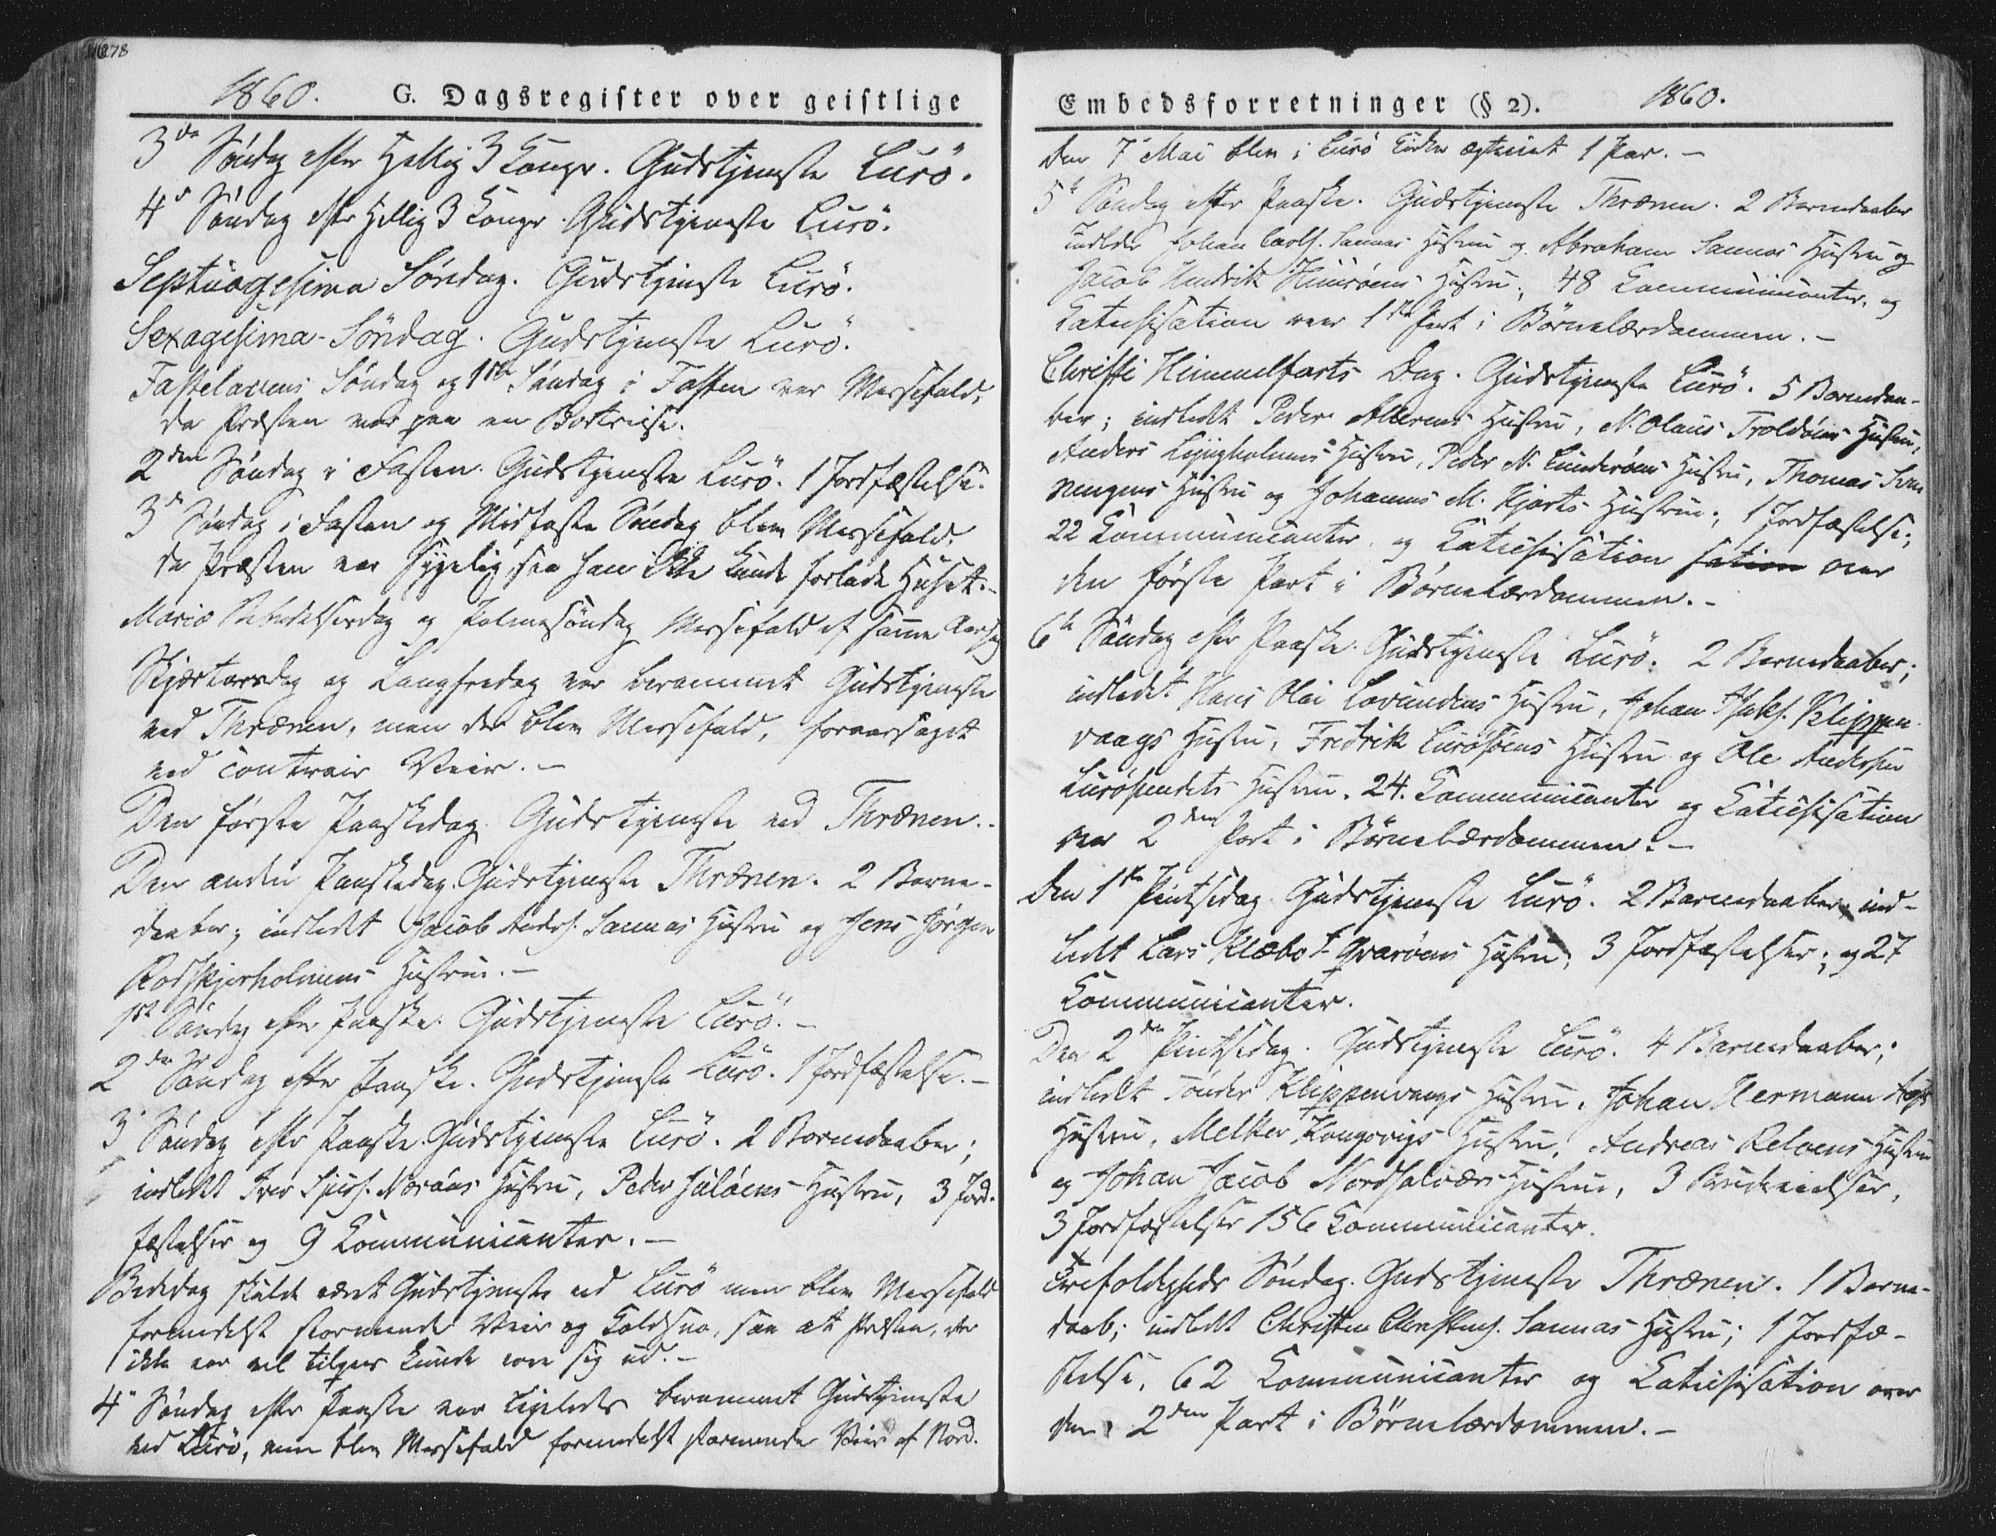 1860. G. Dagsregister over geistlige
3de Søndag efter Hellig 3 Konger. Gudstjeneste Lurö.
4e Søndag efter Hellig 3 Konger. Gudstjeneste Lurö.
Septuagesima Søndag. Gudstjeneste Lurö.
Sexagesima-Söndag. Gudstjeneste Lurö.
Fastelavens Söndag og 1ste Søndag i Fasten var Messefald,
da Præsten var paa en Bortreise.
2den Søndag i Fasten. Gudstjeneste Lurö. 1 Jordfæstelse.
3e Søndag i Fasten og Midfaste Søndag blev Messefald,
da Præsten var Sygelig, saa han ikke kunde forlade Huset.-
Mariæ Bebudelsesdag og Palmesöndag Messefald af samme Aarsag
Skjærtorsdag og Langfredag var berammet Gudstjeneste
ved Thrænen, men der blev Messefald, foraarsaget
ved contrair Veir.-
Den første Paaskedag. Gudstjeneste ved Thrænen.-
Den anden Paaskedag. Gudstjeneste Thrænen. 2 Barne-
daaber; indledt Jacob Anders. Sannas Hustru og Jens Jörgen
Rodskjærholmens Hustru.-
1ste Søndag efter Paaske. Gudstjeneste Lurö.-
2den Søndag efter Paaske. Gudstjeneste Lurö. 1 Jordfæstelse.-
3e Søndag efter Paaske. Gudstjeneste Lurö. 2 Barnedaaber;
indledt Iver Noröens Hustru, Peder Hustru, 3 Jord-
fæstelser og 9 Communicanter.-
Bededag skulde været Gudstjeneste ved Lurö men blev Messefald
formedelst stormende Veir og Koldsno, saa at Præsten, der
ikke var vel tilpas kunde vove sig ud.-
4e Søndag efter Paaske var ligeledes berammet Gudstjeneste
ved Lurö, men blev Messefald formedelst stormende Veir af Nord.
Embedsforretninger (§ 2). 1860.
Den 7e Mai blev i Lurö Kirke ægteviet 1 Par.-
5e Søndag efter Paaske. Gudstjeneste Thrænen. 2 Barnedaaber
indledt Johan Sannas Hustru og Abraham Sannas Hustru og
Jacob Hendrik Hustru; 48 Communicanter, og
Catechisation over 1ste Part i Børnelærdommen.-
Christi Himmelfarts Dag. Gudstjeneste Lurö. 5 Barnedaa-
ber; indledt Peder Hustru, N. Olaus Troldöens Hustru,
Anders Lyngholmens Hustru, Peder N. Hustru, Thomas
Hustru og Johannes M. Hjorts Hustru; 1 Jordfæstelse;
22 Communicanter og Catechisation sation over
den første Part i Børnelærdommen.-
6te Søndag efter Paaske. Gudstjeneste Lurö. 2 Barnedaaber;
indledt Hans Olai Lovundens Hustru, Johan Klippen-
vaags Hustru, Fredrik Hustru og Ole Andersen
Hustru. 24. Communicanter og Catechisation
over 2den Part i Børnelærdommen.-
Den 1ste Pintsedag. Gudstjeneste Lurö. 2 Barnedaaber, ind-
ledt Lars Klæbo Qvaröens Hustru, 3 Jordfæstelser; og 27
Communicanter.
Den 2den Pintsedag. Gudstjeneste Lurö. 4 Barnedaaber;
indledt Tönder Klippenvaags Hustru, Johan Hermann
Hustru, Melker Kongsvigs Hustru, Andreas Reløens Hustru
og Johan Jacob Nordsolværs Hustru, 3 Brudevielser,
3 Jordfæstelser 156 Communicanter.
Trefoldigheds Søndag. Gudstjeneste Thrænen. 1 Barne-
daab; indledt Christen Christens. Sannas Hustru; 1 Jordfæ-
stelse, 62 Communicanter og Catechisation over
den 2den Part i Børnelærdommen.-